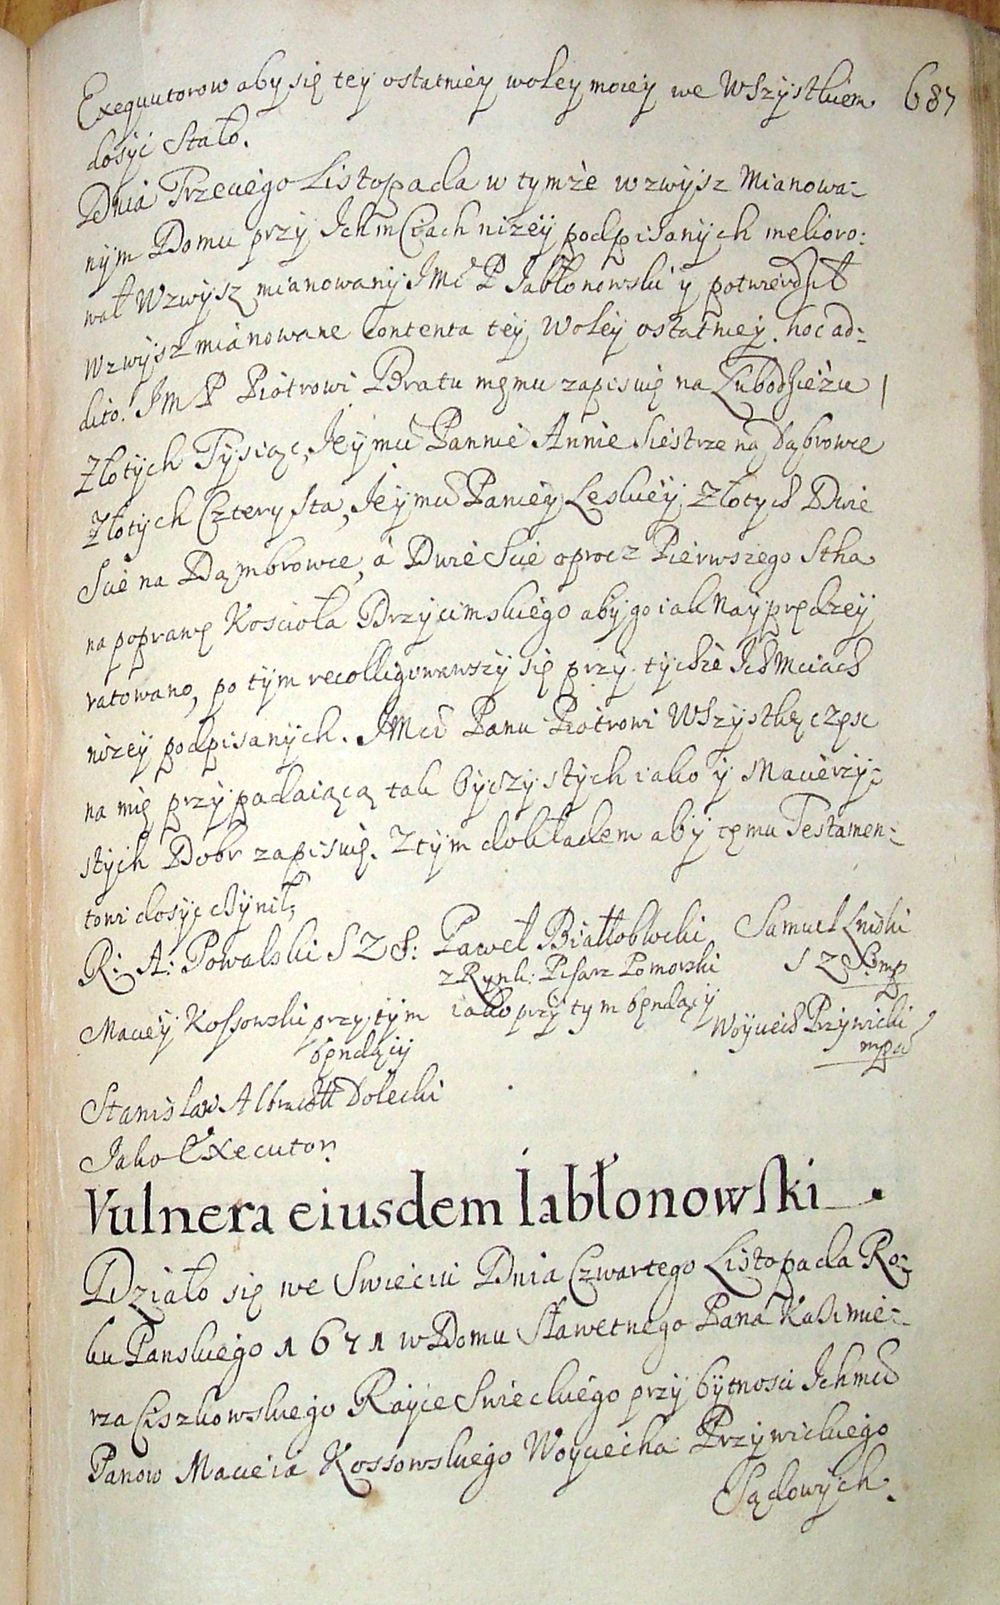 Exequutorow aby się tey ostatniey woley moiey we Wszystkiem 687
dosyć Stało.
Dnia Trzeciego Listopada w tymże wzwysz Mianowa:
nym Domu przy Ichmczach niżey podpisanych melioro:
wał Wzwysz mianowany JMć P Jabłonowski y potwierdził
wzwysz mianowane contenta tey Woley ostatniey. hoc ad:
dito. JM P Piotrowi Bratu męmu zapisuię na Lubodzieżu
Złotych Tysiąc, Jeymć Pannie Annie Siestrze na Dąbrowce
Złotych Cztery Sta, Jeymć Paniey Leskiey Złotych Dwie
Scie na Dąmbrowce, á Dwie Scie oprocz Pierwszego Stha
na poprawę Koscioła Drzycimskiego aby go iak Nayprędzey
ratowano, po tym recolligowawszy się przy tychże Ichmciach
niżey podpisanych. JMći Panu Piotrowi Wszystkę częsc
na mię przypadaiącą tak Oyczystych iako y Macierzy:
stych Dobr zapisuię. Z tym dokładem aby tęmu Testamen:
towi dosyć czynił,
R: A: Powalski S Z S: Paweł Białłobłocki Samuel Linski
z Rynk: Pisarz Pomorski S Z S mp
Maciey Kossowski przy tym iako przy tym będący Woyciech Przywicki
będąciy mpa
Stanisław Albracht Dolecki
Jako Executor
Vulnera eiusdem Iabłonowski
Działo się we Swieciu Dnia Czwartego Listopada Ro:
ku Panskiego 1671 w Domu Sławetnego Pana Kazimie:
rza Ciszkowskiego Rayce Swieckiego przy bytnosci Ichmć
Panow Macieia Kossowskiego Woyciecha Przywickiego
Sądowych